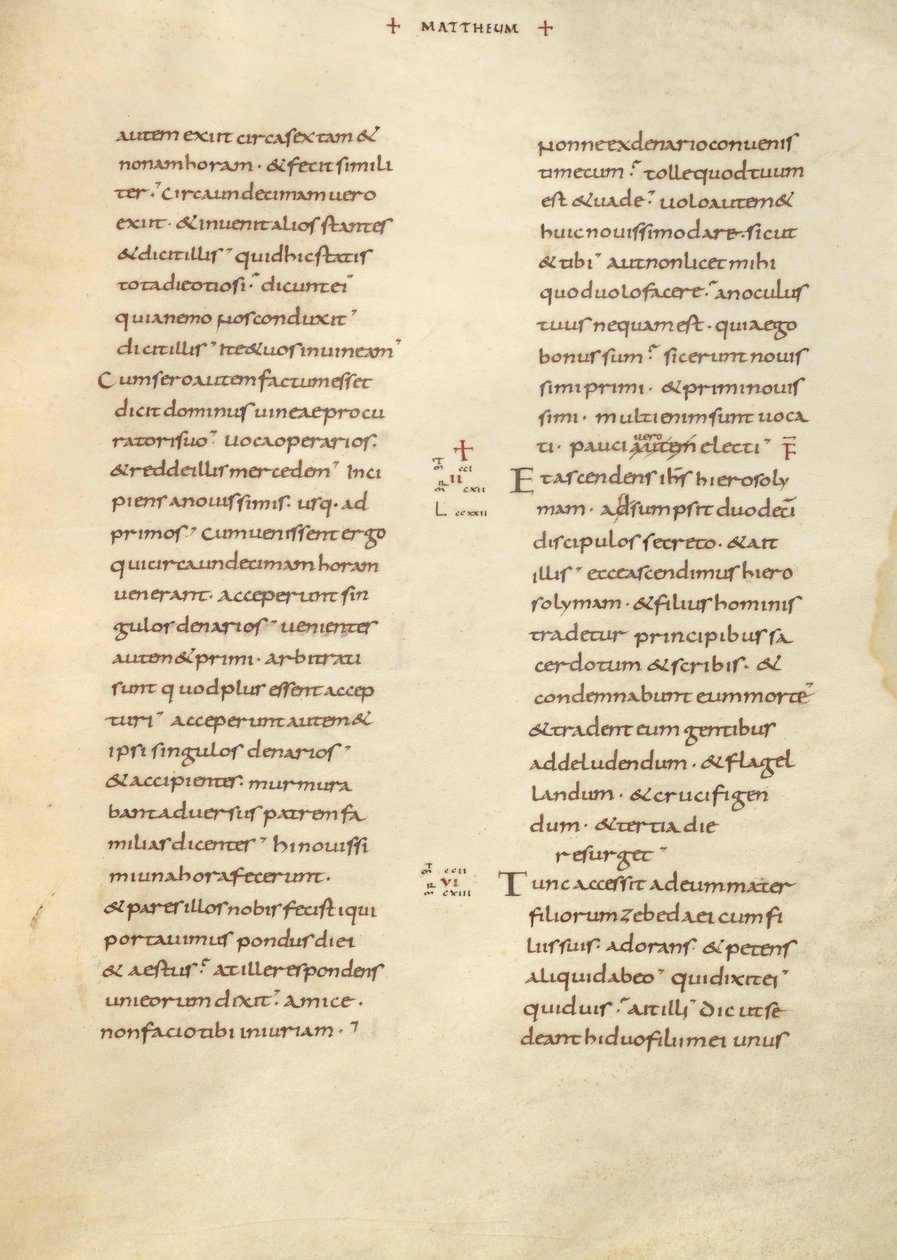 + MATTHEUM +
autem exiit circa sextam &
nonam horam · & fecit simili
ter · Circa undecimam uero
exiit · & inuenit alios stantes
& dicit illis quid hic statis
tota die otiosi dicunt ei
quia nemo nos conduxit
dicit illis ite & uos in uineam
Cum sero autem factum esset
dicit dominus uineae procu
ratori suo uoca operarios.
& redde illis mercedem Inci
piens a nouissimis. usq· ad
primos Cum uenissent ergo
qui circa undecimam horam
uenerant · acceperunt sin
gulos denarios uenientes
autem & primi · arbitrati
sunt quod plus essent accep
turi acceperunt autem &
ipsi singulos denarios
& accipientes · murmura
bant aduersus patrem fa
milias dicentes hi nouissi
mi una hora fecerunt ·
& pares illos nobis fecisti qui
portauimus pondus diei
& aestus at ille respondens
uni eorum dixit Amice ·
non facio tibi iniuriam ·
Nonne ex denario conuenis
ti mecum tolle quod tuum
est & uade uolo autem &
huic nouissimo dare sicut
& tibi aut non licet mihi
quod uolo facere an oculus
tuus nequam est · quia ego
bonus sum sic erunt nouis
simi primi · & primi nouis
simi · multi enim sunt uoca
ti · pauci autem uero electi F
+
mr cci
II
mr cxii
L ccxxii
Et ascendens ihs hierosoly
mam · adsumpsit duodeci
discipulos secreto · & ait
illis ecce ascendimus hiero
solymam · & filius hominis
tradetur principibus sa
cerdotum & scribis · &
condemnabunt eum morte
& tradent eum gentibus
ad deludendum · & flagel
landum · & crucifigen
dum · & tertia die
resurget
mt ccii
VI
mr cxiii
Tunc accessit ad eum mater
filiorum zebedaei cum fi
liis suis adorans & petens
aliquid ab eo qui dixit ei
quid uis ait illi Dic ut se
deant hi duo filii mei unus